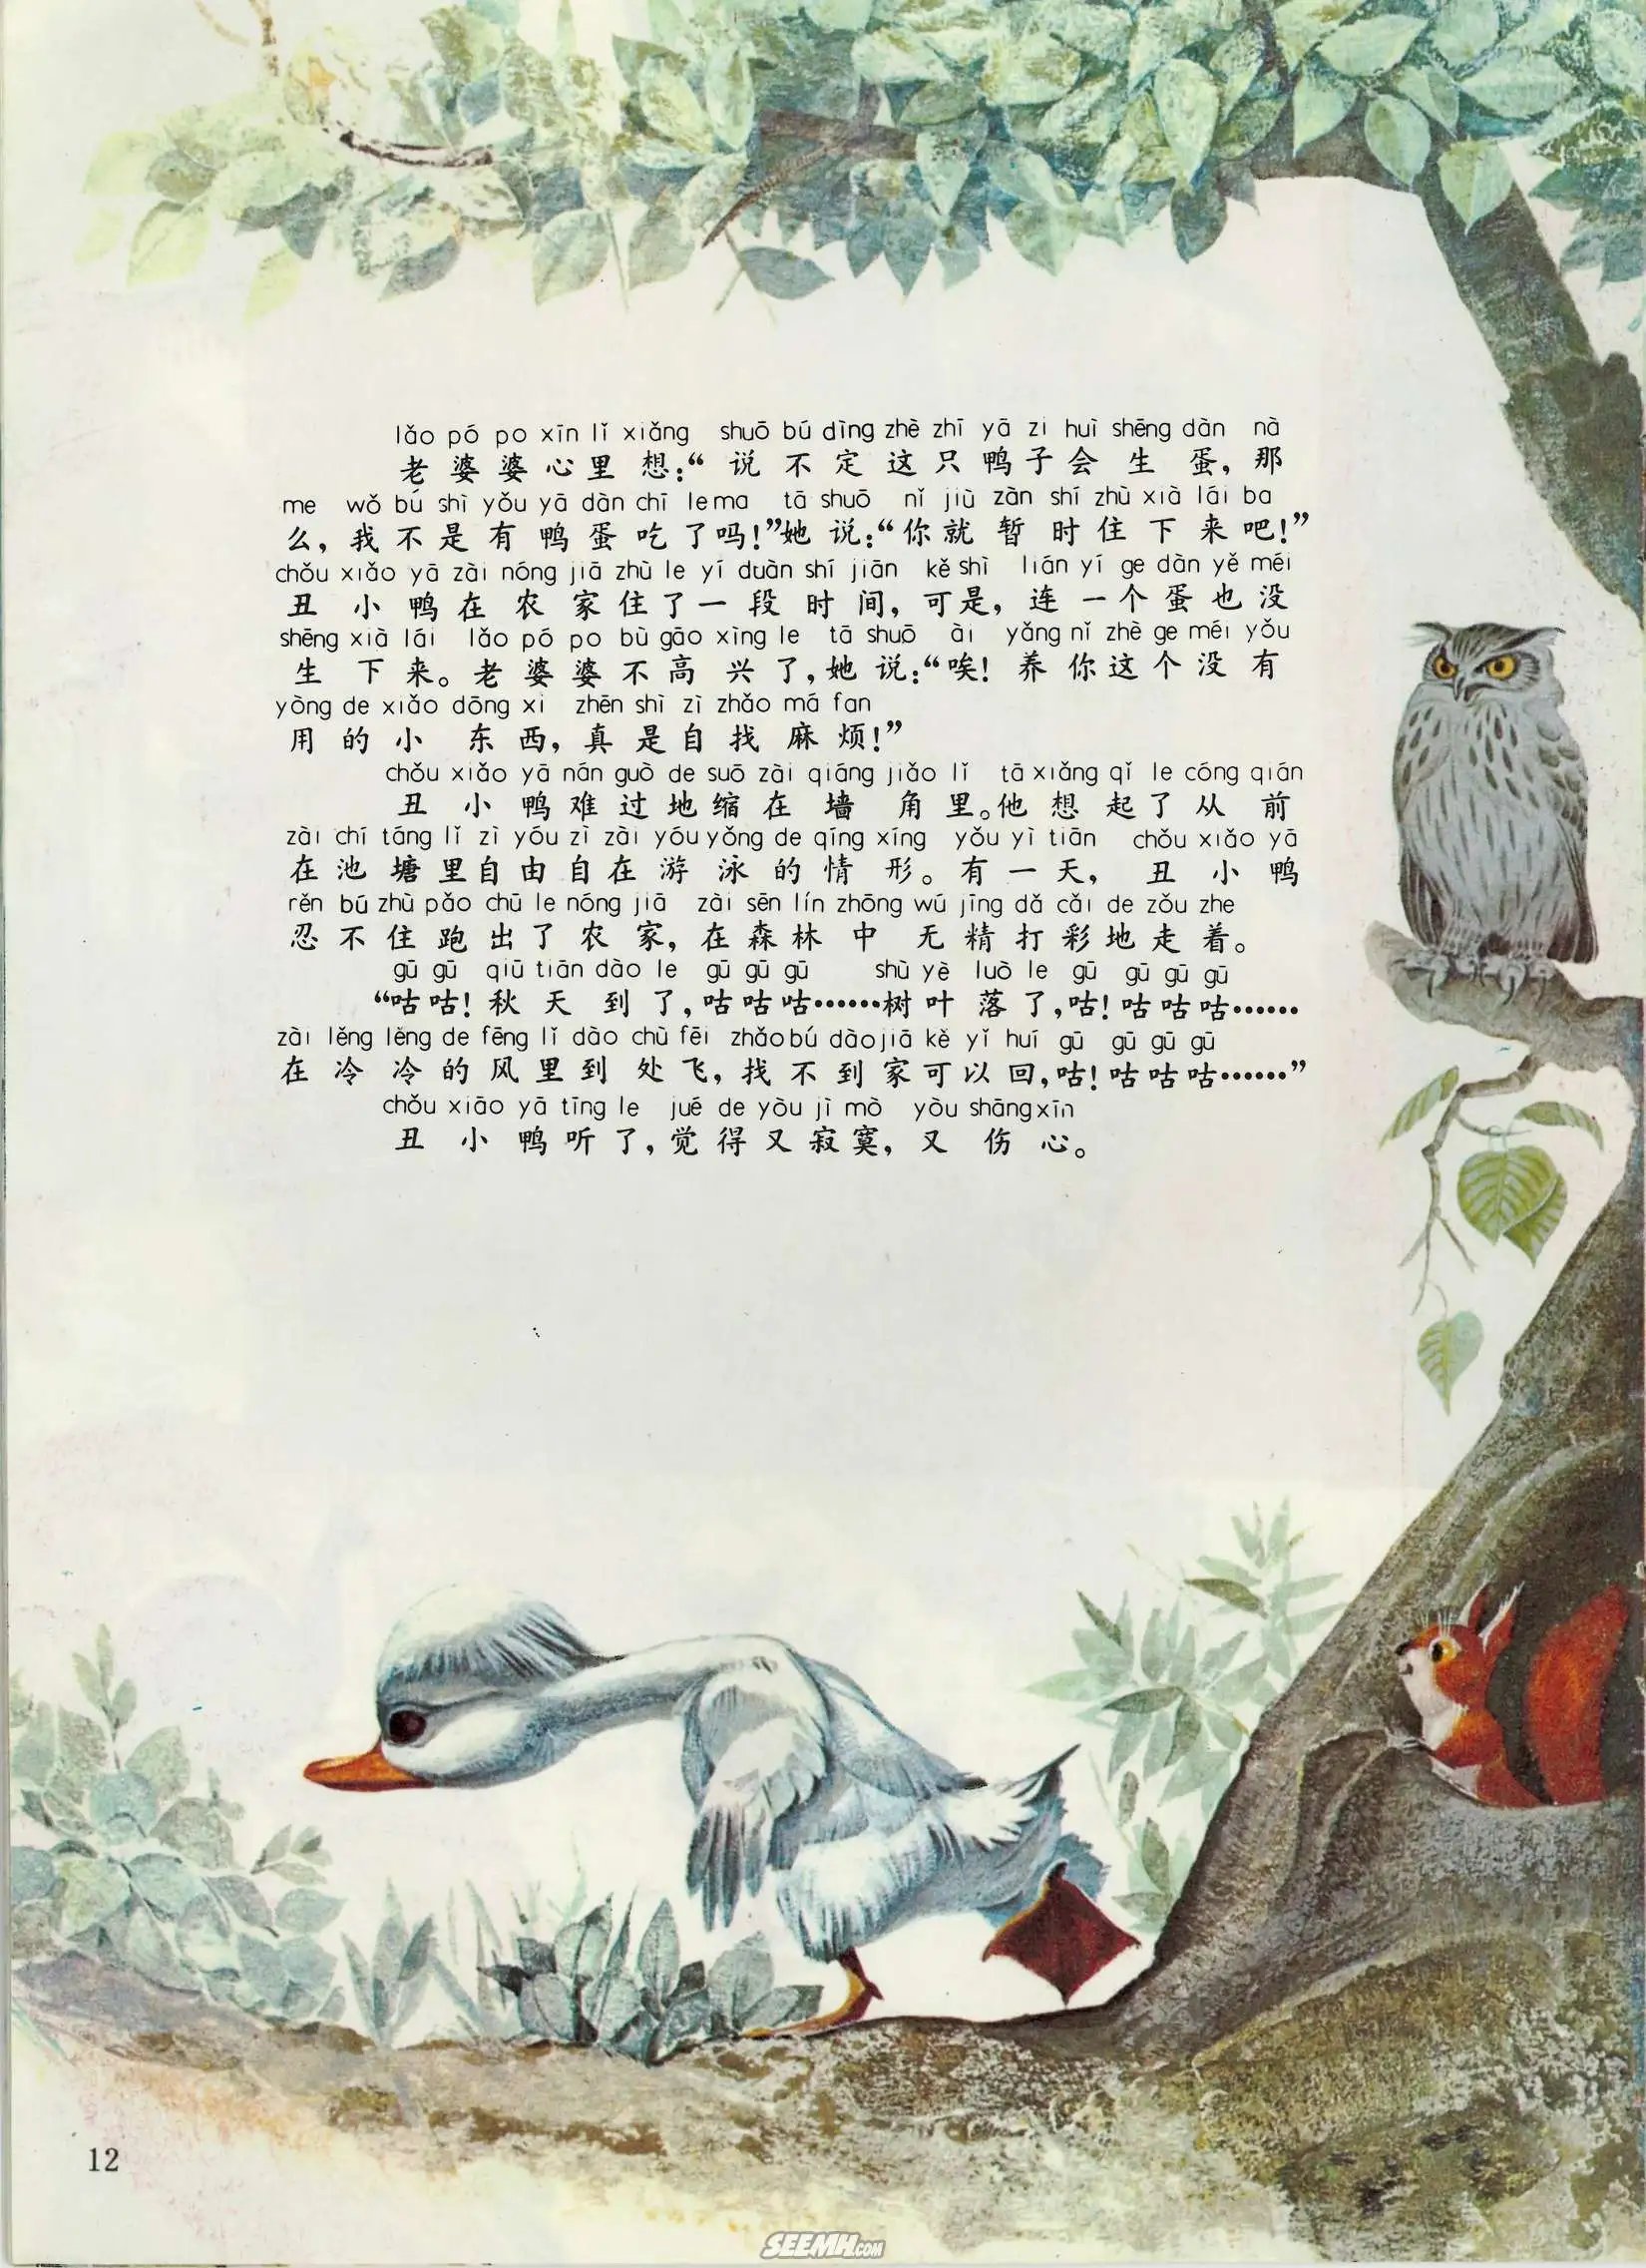 lǎo pó po xīn lǐ xiǎng shuō bú dìng zhè zhī yā zi huì shēng dàn nà
老婆婆心里想：“说不定这只鸭子会生蛋，那
me wǒ bú shì yǒu yā dàn chī lema tā shuō nǐ jiù zàn shí zhù xià lái ba
么，我不是有鸭蛋吃了吗！”她说：“你就暂时住下来吧！”
chǒu xiǎo yā zài nóng jiā zhù le yí duàn shí jiān kě shì lián yí ge dàn yě méi
丑小鸭在农家住了一段时间，可是，连一个蛋也没
shēng xià lái lǎo pó po bù gāo xìng le tā shuō ài yǎng nǐ zhè ge méi yǒu
生下来。老婆婆不高兴了，她说：“唉！养你这个没有
yòng de xiǎo dōng xi zhēn shì zì zhǎo má fan
用的小东西，真是自找麻烦！”
chǒu xiǎo yā nán guò de suō zài qiáng jiǎo lǐ tā xiǎng qǐ le cóng qián
丑小鸭难过地缩在墙角里。他想起了从前
zài chí táng lǐ zì yóu zì zài yóu yǒng de qíng xíng yǒu yì tiān chǒu xiǎo yā
在池塘里自由自在游泳的情形。有一天，丑小鸭
rěn bú zhù pǎo chū le nóng jiā zài sēn lín zhōng wú jīng dǎ cǎi de zǒu zhe
忍不住跑出了农家，在森林中无精打彩地走着。
gū gū qiū tiān dào le gū gū gū shù yè luò le gū gū gū gū
“咕咕！秋天到了，咕咕咕……树叶落了，咕！咕咕咕……
zài lěng lěng de fēng lǐ dào chù fēi zhǎo bú dào jiā kě yǐ huí gū gū gū gū
在冷冷的风里到处飞，找不到家可以回，咕！咕咕咕……”
chǒu xiāo yā tīng le jué de yòu jì mò yòu shāng xīn
丑小鸭听了，觉得又寂寞，又伤心。
12
SEEMH.COM